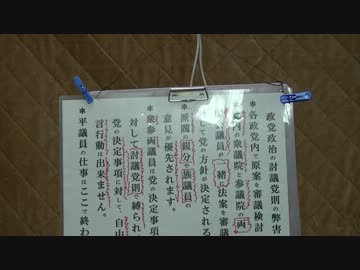 政党政治の討議党則の弊害
＊各政党内で原案を審議検討
＊党内の衆議院と参議院の（両
討議員（一緒に法案を審議
て党の方針が決定される
派閥の（親分）（族議員の
意見が優先されます。
＊衆参両議員は党の決定事項
対して討議党則で縛られ
党の決定事項に対して、自由
言行動は出来ません。
＊平議員の仕事はここで終わ